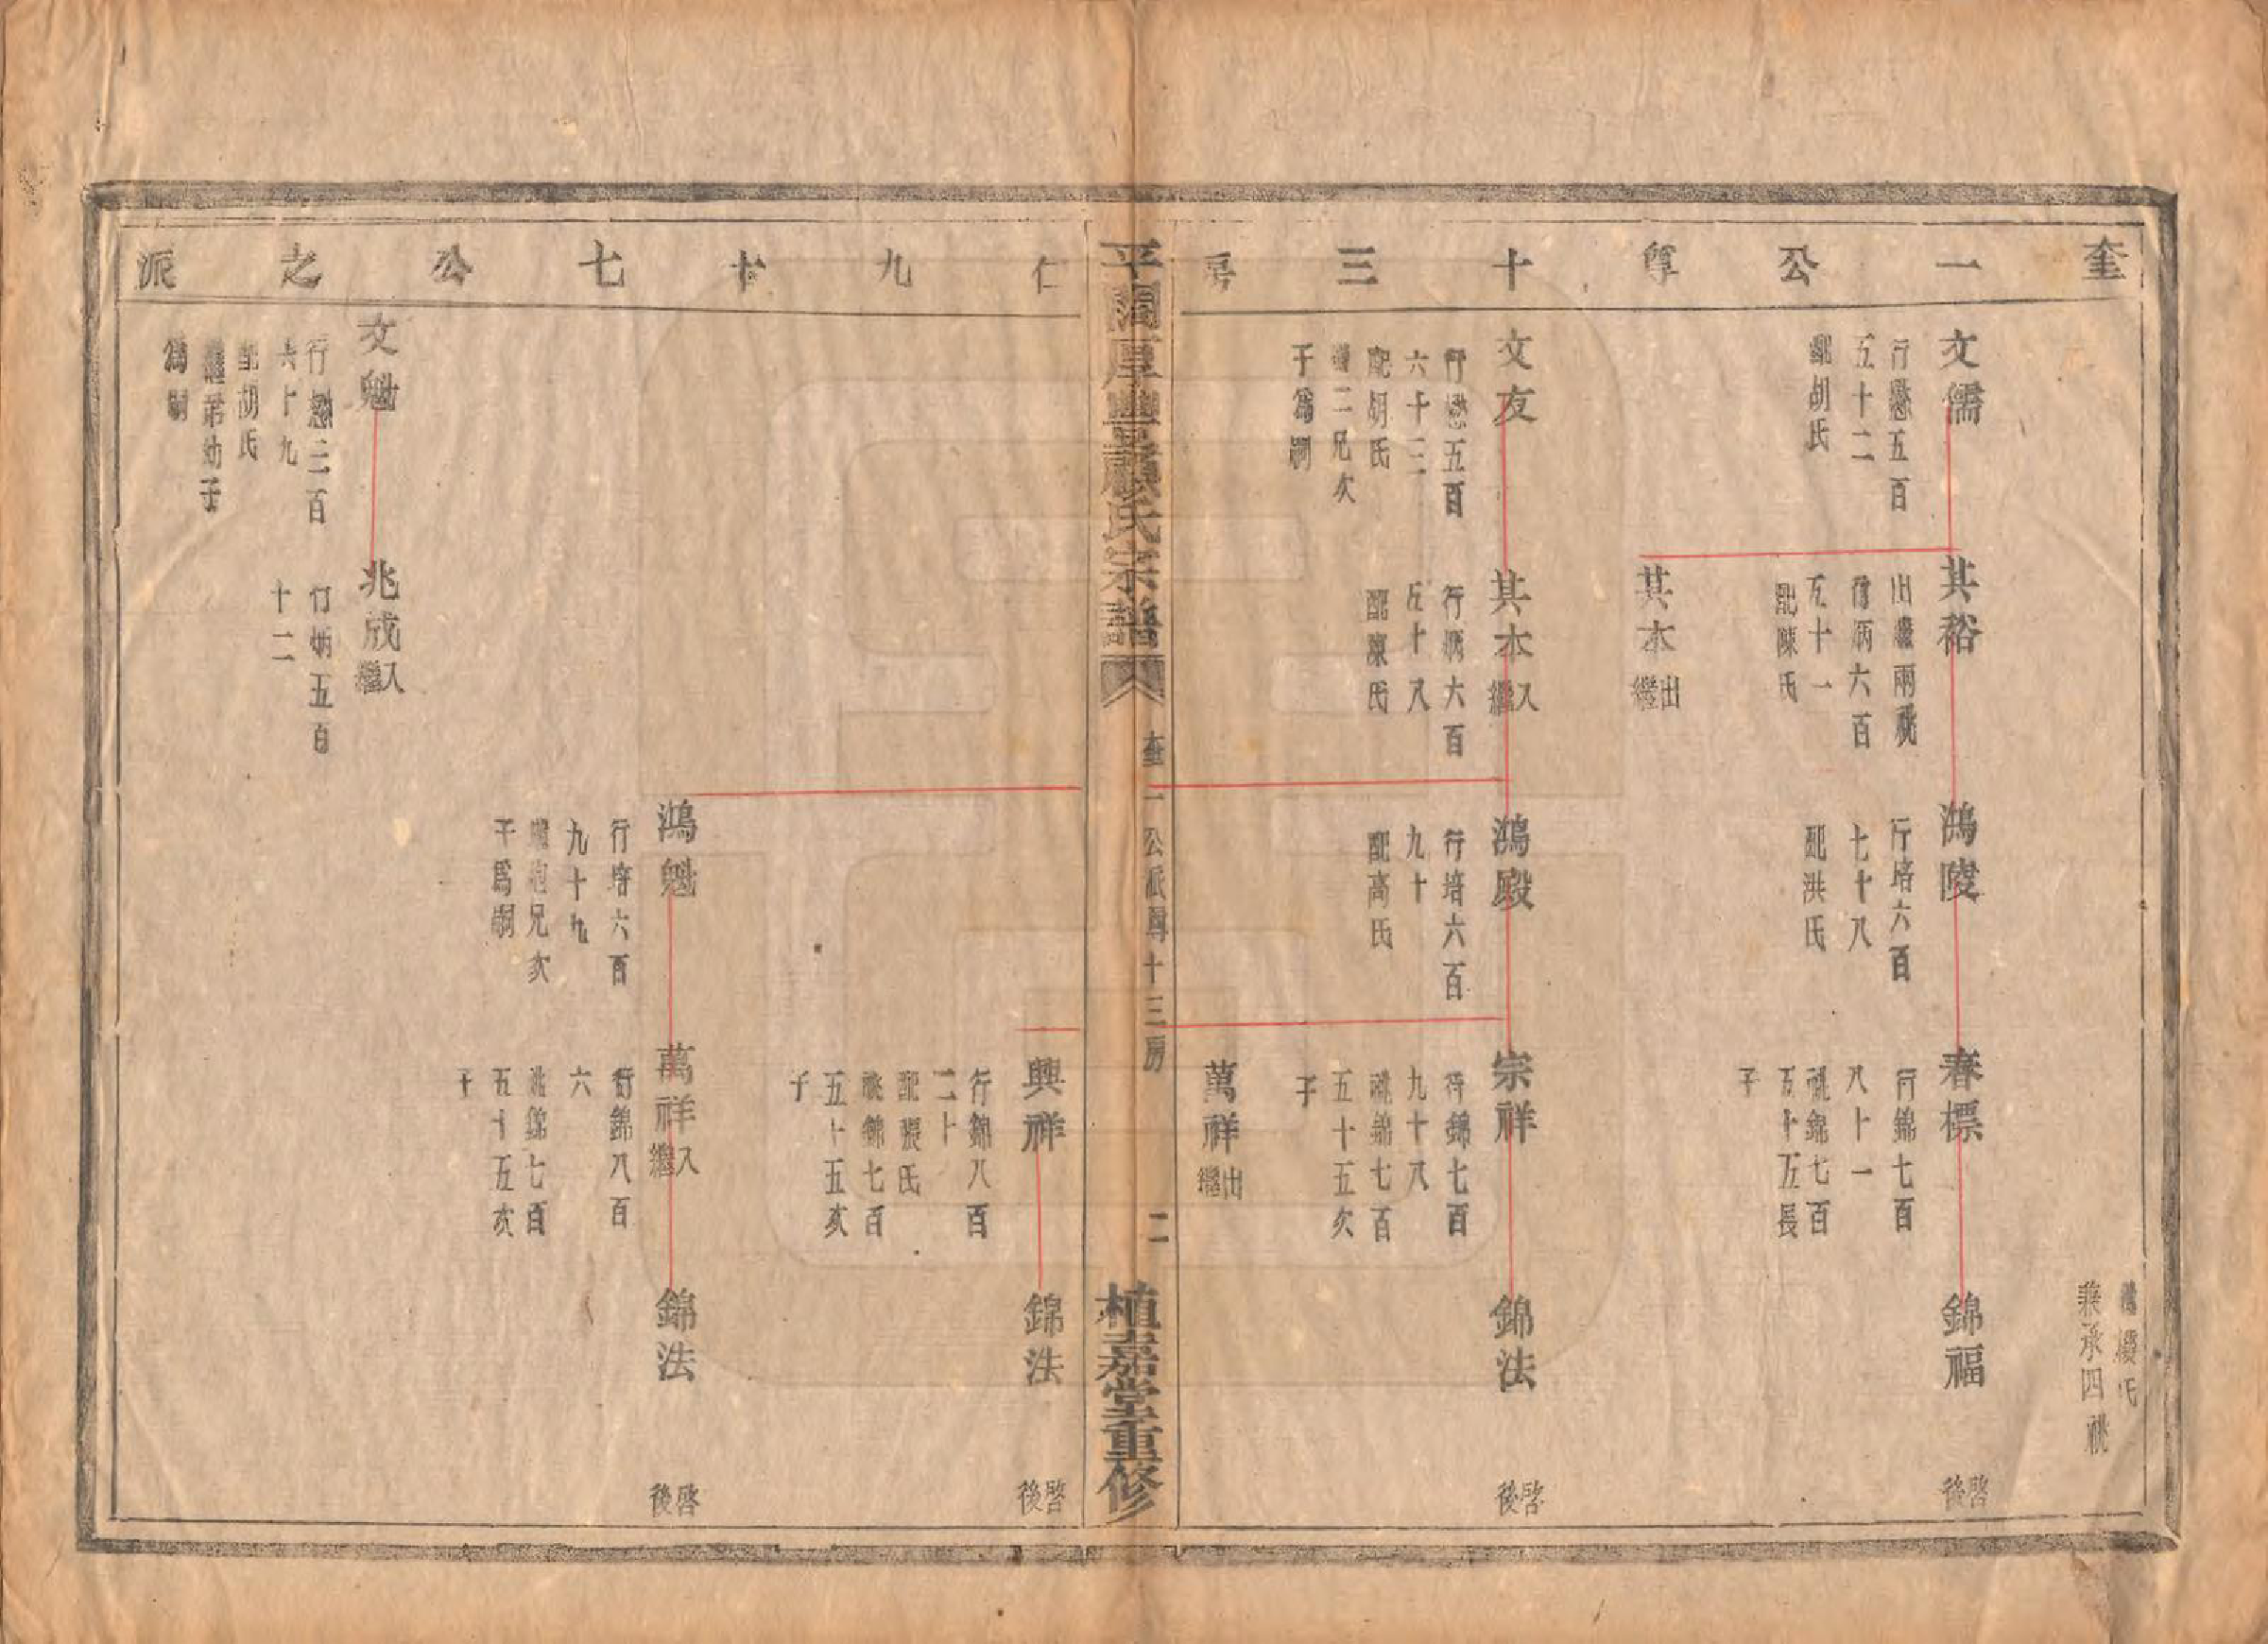 奎一公尊十三房仁九十七公之派
配嚴氏
兼承四祧
文儒
行懋五百
五十二
配胡氏
其裕
出繼兩祧
行炳六百
五十一
配陳氏
鴻陵
行培六百
七十八
配洪氏
春標
行錦七百
八十一
祧錦七百
五十五長
子
錦福
啓後
其木
出繼
文友
行懋五百
六十三
配胡氏
繼二兄次
子爲嗣
其木
入繼
行炳六百
五十八
配陳氏
鴻殿
行培六百
九十
配高氏
宗祥
行錦七百
九十八
祧錦七百
五十五次
子
錦法
啓後
萬祥
出繼
平闊厚豊顧氏宗譜
奎一公派尊十三房
二
植嘉堂重修
興祥
行錦八百
二十
配張氏
祧錦七百
五十五次
子
錦法
啓後
鴻魁
行培六百
九十九
繼胞兄次
子爲嗣
萬祥
入繼
行錦八百
六
祧錦七百
五十五次
子
錦法
啓後
文魁
行懋三百
六十九
配胡氏
繼弟幼子
爲嗣
兆成
入繼
行炳五百
十二